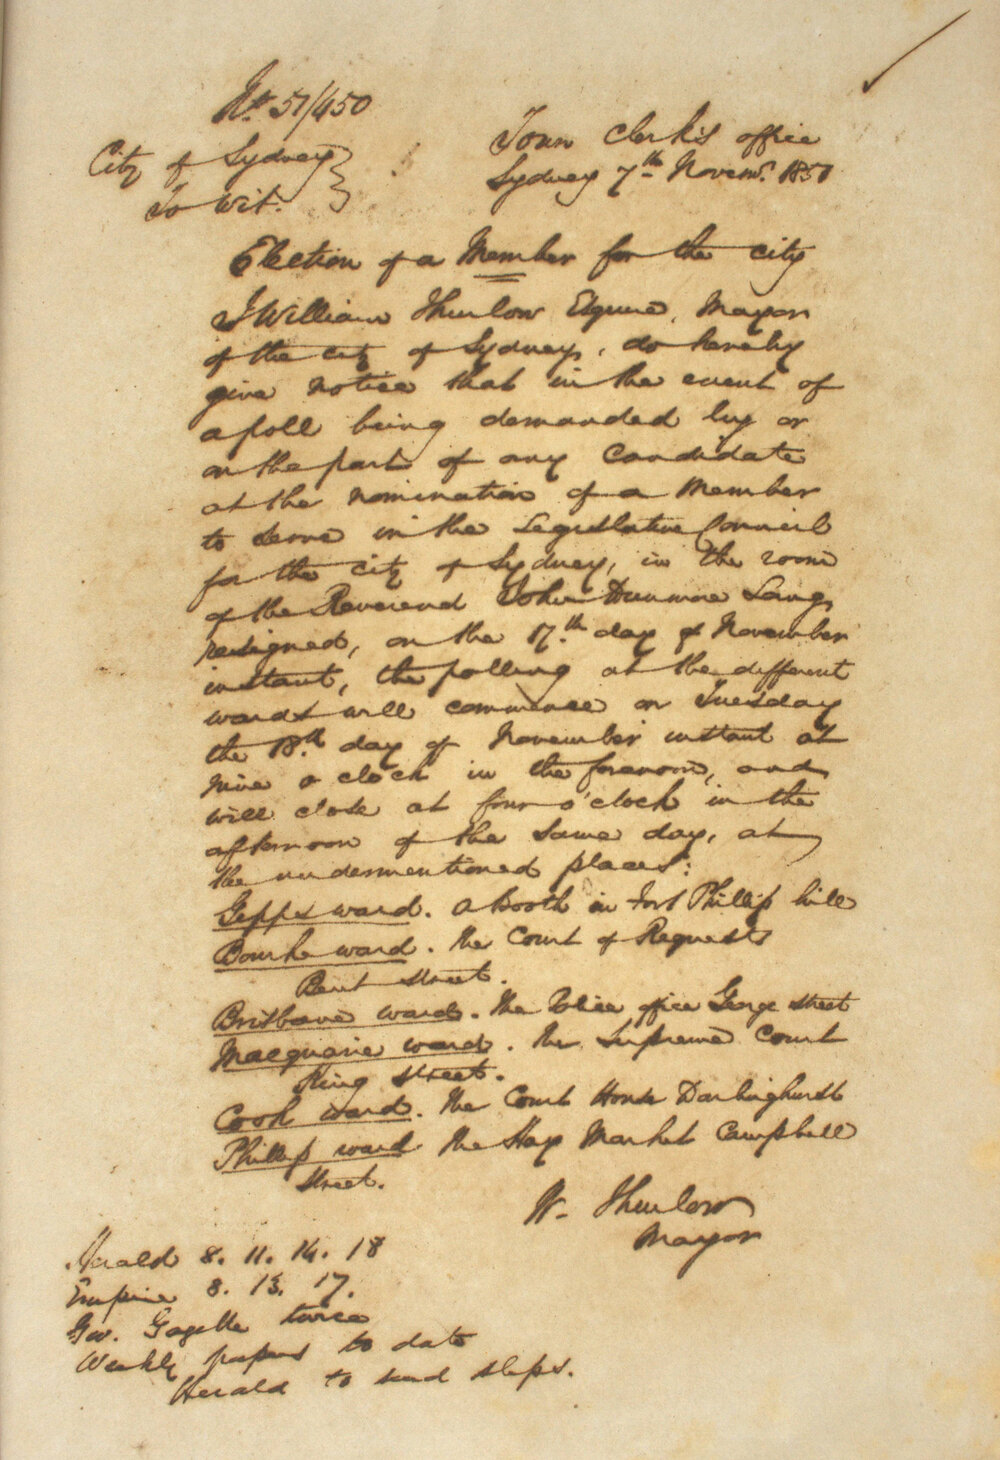 No 51/450
City of Sydney
To Wit.
Town Clerk's office
Sydney 7th Novemr. 1851
Election of a Member for the city
I William Thurlow Esquire, Mayor
of the city of Sydney, do hereby
give notice that in the event of
a poll being demanded by or
on the part of any Candidate
at the nomination of a Member
to serve in the Legislative Council
for the city of Sydney, in the room
of the Reverend John Dunmore Lang,
resigned, on the 17th. day of November
instant, the polling at the different
wards will commence on Tuesday
the 18th. day of November instant at
nine o clock in the forenoon, and
will close at four o'clock in the
afternoon of the same day, at
the undermentioned places:
Gipps ward. a booth in Fort Phillip hill
Bourke ward. the Court of Requests
Bent street.
Brisbane ward. the Police office George street
Macquarie ward. the Supreme Court
King street.
Cook ward. the Court House Darlinghurst
Phillip ward the Hay Market Campbell
Street.
W. Thurlow
Mayor
Herald 8. 11. 14. 18
Empire 8. 13. 17.
Gov. Gazette twice
Weekly papers to date
Herald to send slips.